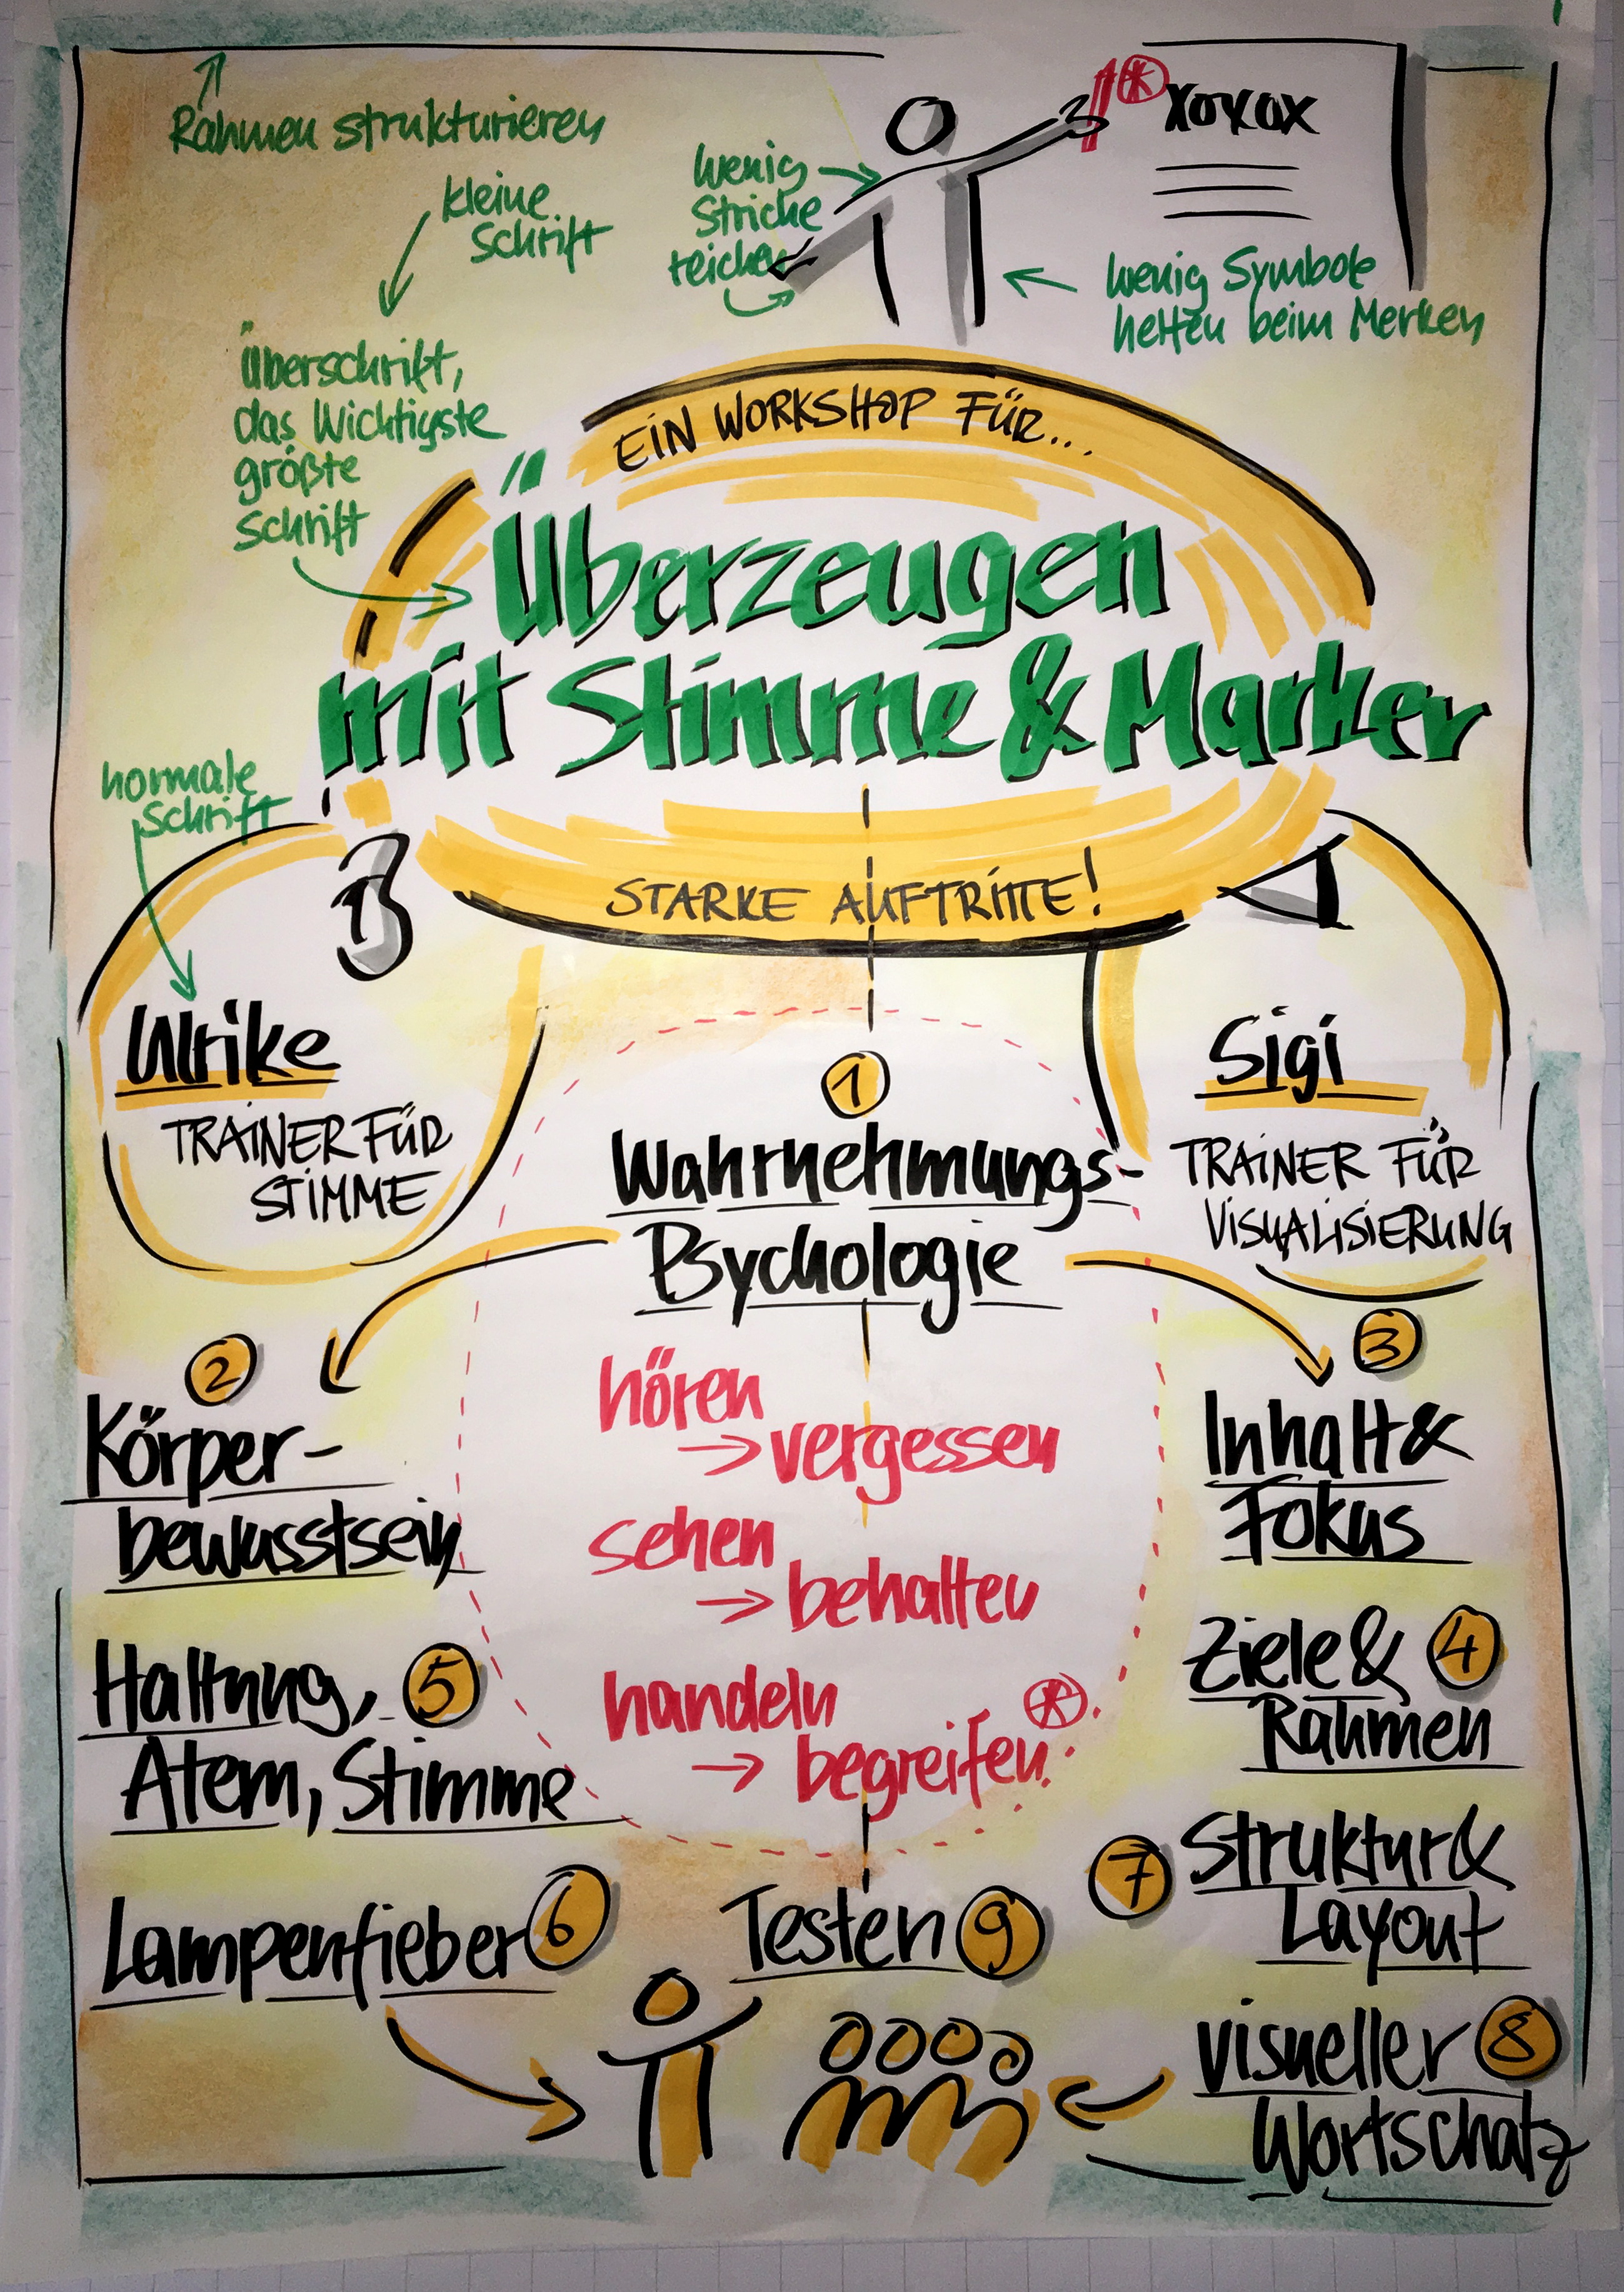 Rahmen strukturieren
kleine
Schrift
wenig
Striche
reichen
xoxox
wenig Symbole
helfen beim Merken
Überschrift,
das Wichtigste
größte
Schrift
EIN WORKSHOP FÜR...
Überzeugen
mit Stimme & Marker
STARKE AUFTRITTE!
normale
Schrift
Ulrike
TRAINER FÜR
STIMME
Sigi
TRAINER FÜR
VISUALISIERUNG
1
Wahrnehmungs-
Psychologie
hören
→ vergessen
sehen
→ behalten
handeln
→ begreifen.
2
Körper-
bewusstsein
3
Inhalt &
Fokus
Ziele & 4
Rahmen
Haltung, 5
Atem, Stimme
Lampenfieber 6
7 Struktur &
Layout
visueller 8
Wortschatz
Testen 9